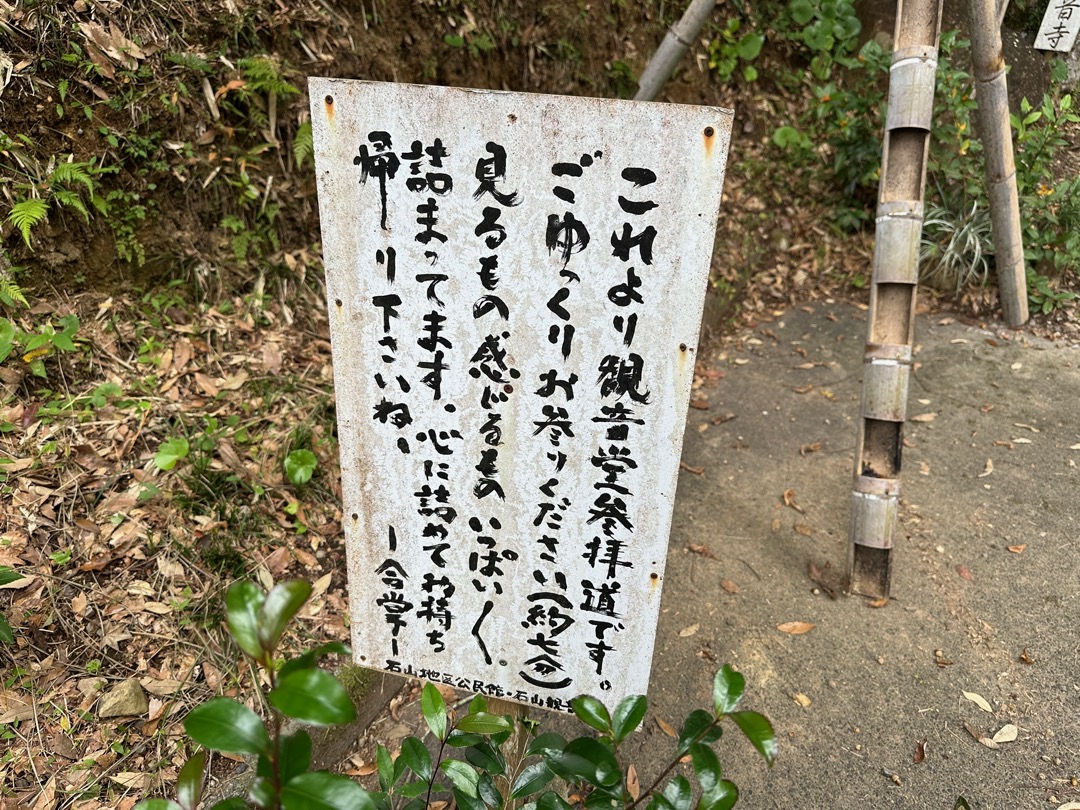 これより観音堂参拝道です。
ごゆっくりお参りください(約七分)
見るもの感じるもの いっぱいく。
詰まってます、心に詰めてお持ち
帰り下さいね、
ー合掌ー
石山地区公民館・石山観音
音寺